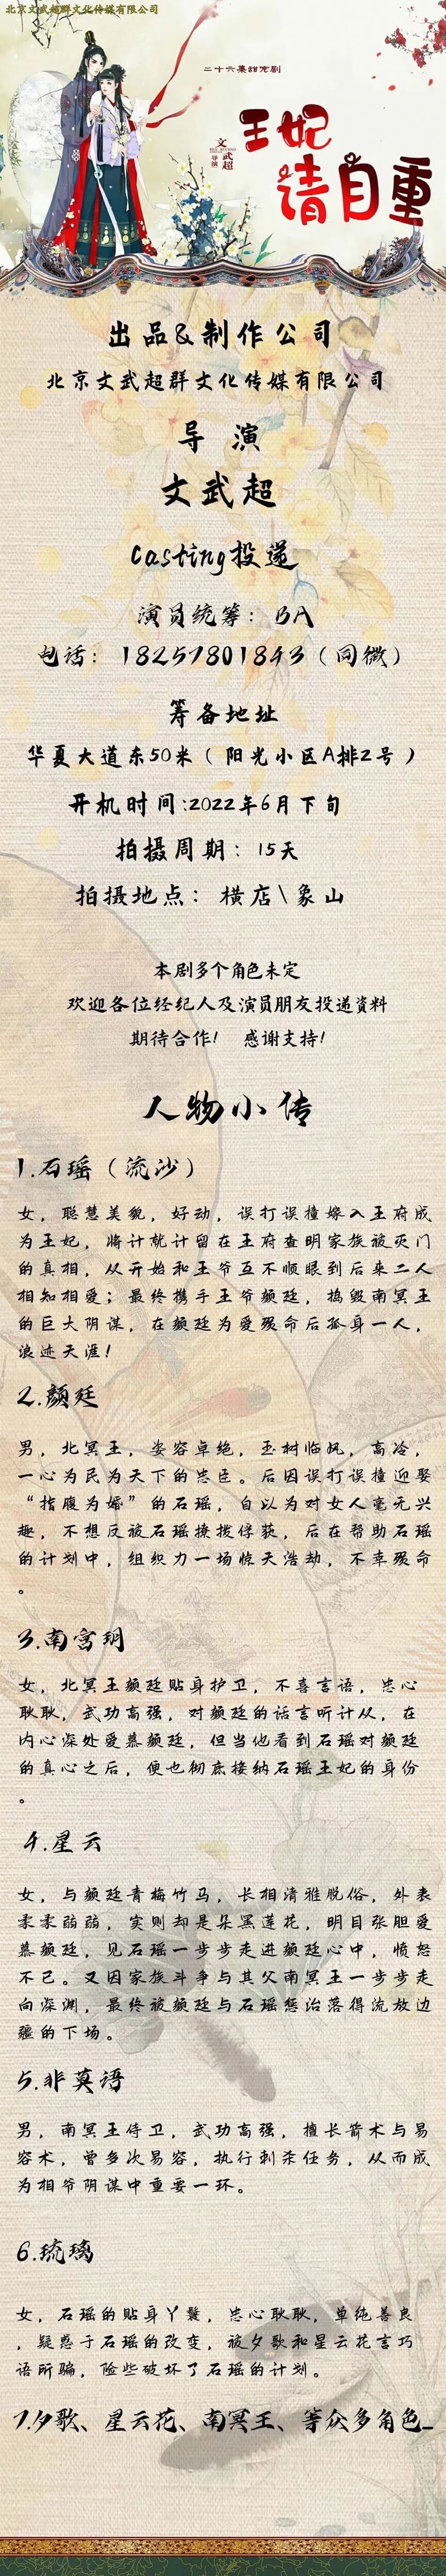 北京文武超群文化传媒有限公司
二十六集甜宠剧
王妃
请自重
文武超
导演
出品&制作公司
北京文武超群文化传媒有限公司
导 演
文武超
casting投递
演员统筹：BA
电话：18257801843（同微）
筹备地址
华夏大道东50米（阳光小区A排2号）
开机时间:2022年6月下旬
拍摄周期：15天
拍摄地点：横店\象山
本剧多个角色未定
欢迎各位经纪人及演员朋友投递资料
期待合作！ 感谢支持！
人物小传
1.石瑶（流沙）
女，聪慧美貌，好动，误打误撞嫁入王府成
为王妃，将计就计留在王府查明家族被灭门
的真相，从开始和王爷互不顺眼到后来二人
相知相爱；最终携手王爷颜廷，捣毁南冥王
的巨大阴谋，在颜廷为爱殒命后孤身一人，
浪迹天涯！
2.颜廷
男，北冥王，姿容卓绝，玉树临帆，高冷，
一心为民为天下的忠臣。后因误打误撞迎娶
“指腹为婚”的石瑶，自以为对女人毫无兴
趣，不想反被石瑶撩拨俘获，后在帮助石瑶
的计划中，组织力一场惊天浩劫，不幸殒命
。
3.南宫玥
女，北冥王颜廷贴身护卫，不喜言语，忠心
耿耿，武功高强，对颜廷的话言听计从，在
内心深处爱慕颜廷，但当他看到石瑶对颜廷
的真心之后，便也彻底接纳石瑶王妃的身份
。
4.星云
女，与颜廷青梅竹马，长相清雅脱俗，外表
柔柔弱弱，实则却是朵黑莲花，明目张胆爱
慕颜廷，见石瑶一步步走进颜廷心中，愤怒
不已。又因家族斗争与其父南冥王一步步走
向深渊，最终被颜廷与石瑶惩治落得流放边
疆的下场。
5.非莫语
男，南冥王侍卫，武功高强，擅长箭术与易
容术，曾多次易容，执行刺杀任务，从而成
为相爷阴谋中重要一环。
6.琉璃
女，石瑶的贴身丫鬟，忠心耿耿，单纯善良
，疑惑于石瑶的改变，被夕歌和星云花言巧
语所骗，险些破坏了石瑶的计划。
7.夕歌、星云花、南冥王、等众多角色_